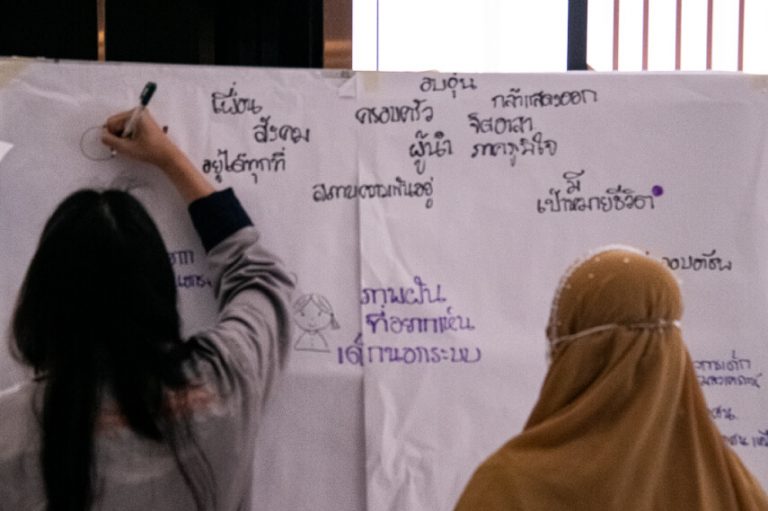 อบอุ่น
เพื่อน
ครอบครัว
กล้าแสดงออก
สังคม
จิตอาสา
ผู้นำ
ภาคภูมิใจ
อยู่ได้ทุกที่
สภาพความเป็นอยู่
มี
เป้าหมายชีวิต
ภาพฝัน
ที่อยากเห็น
เด็กนอกระบบ